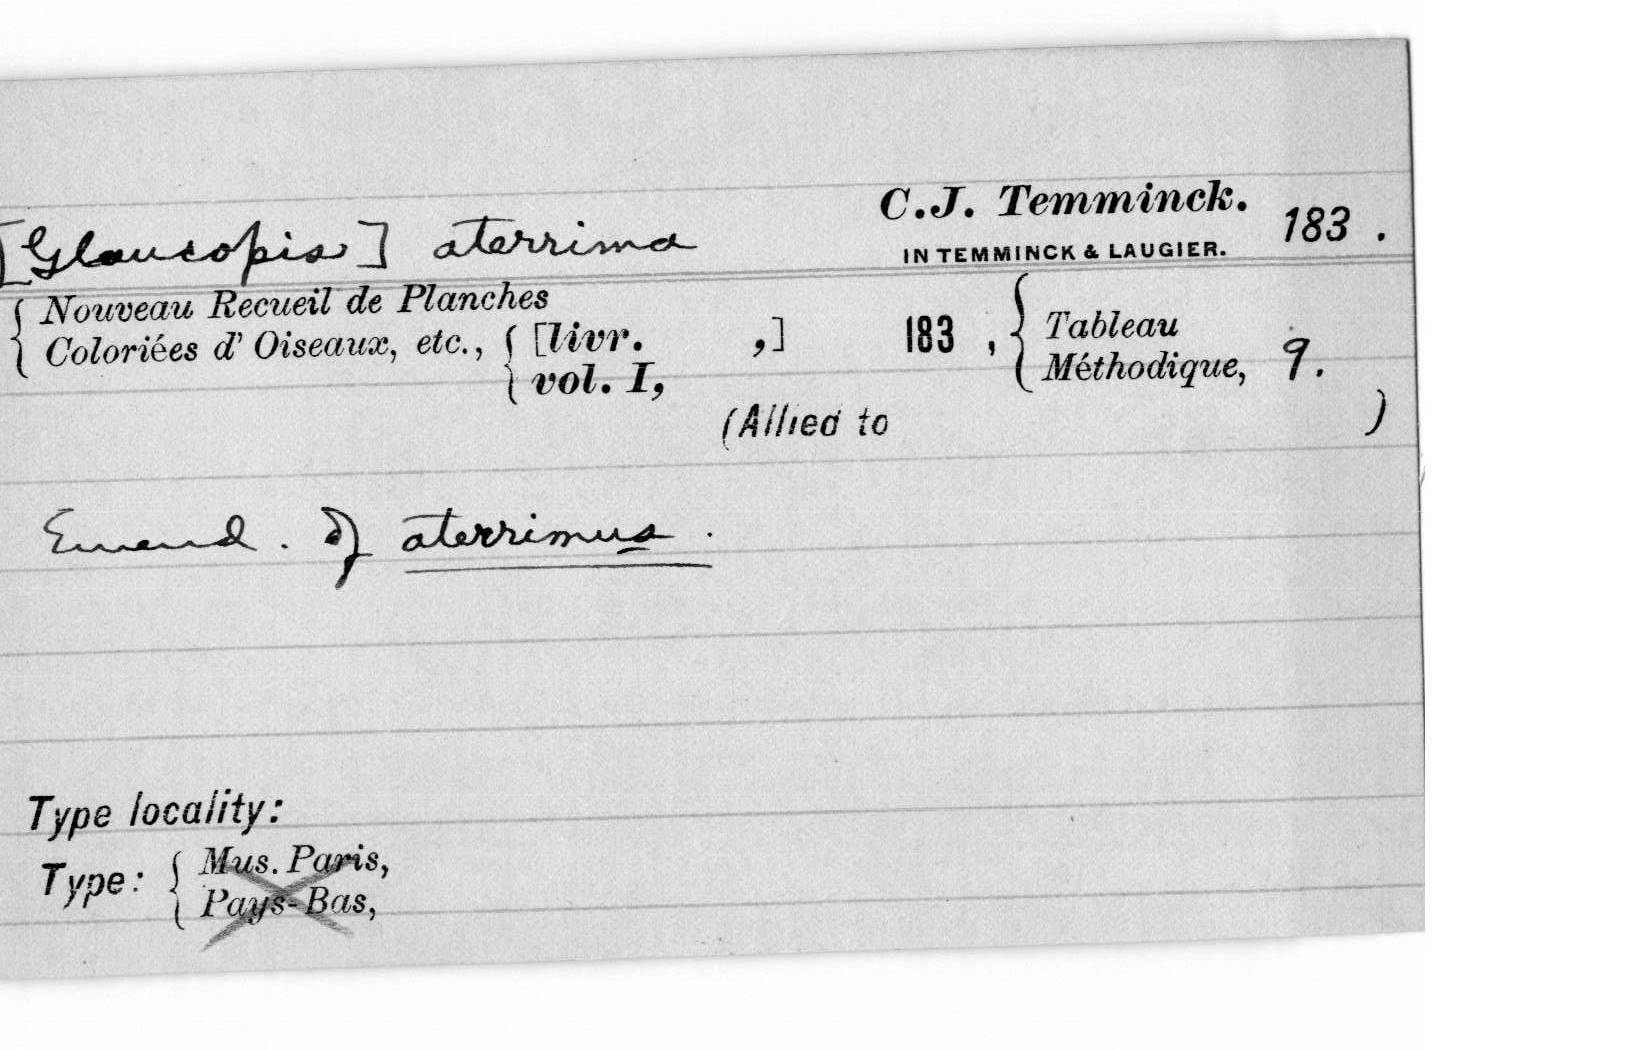 [Glaucopis] aterrima C.J. Temminck. 183.
IN TEMMINCK & LAUGIER.
Nouveau Recueil de Planches
Coloriées d' Oiseaux, etc., { [livr. ,] 183 , { Tableau
vol. I, Méthodique, 9.
(Allied to )
Emend. of aterrimus.
Type locality:
Type: { Mus. Paris,
Pays-Bas,